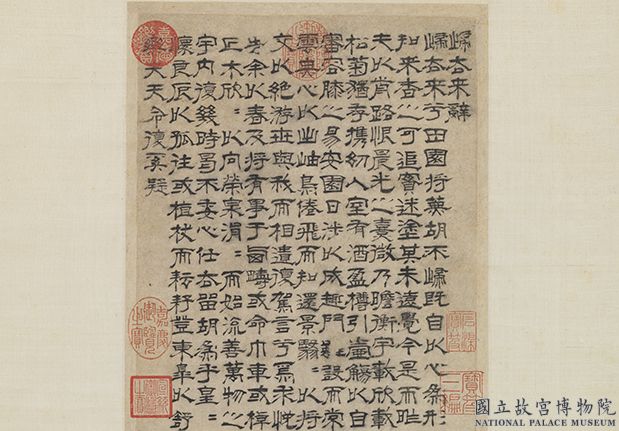 歸去來辭
歸去來兮田園將蕪胡不歸既自以心為形
知來者之可追實迷塗其未遠覺今是而昨
夫以前路恨晨光之熹微乃瞻衡宇載欣載
松菊猶存攜幼入室有酒盈樽引壺觴以自
審容膝之易安園日涉以成趣門雖設而常
雲無心以出岫鳥倦飛而知還景翳〻以將
交以絕游世與我而相遺復駕言兮焉求悅
告余以春及將有事于西疇或命巾車或棹
正木欣〻以向榮泉涓〻而始流善萬物之
宇內復幾時曷不委心任去留胡為乎遑〻
懷良辰以孤往或植杖而耘耔登東皋以舒
夫天命復奚疑
嘉慶御覽之寶
石渠寶笈
寶笈三編
國立故宮博物院
NATIONAL PALACE MUSEUM